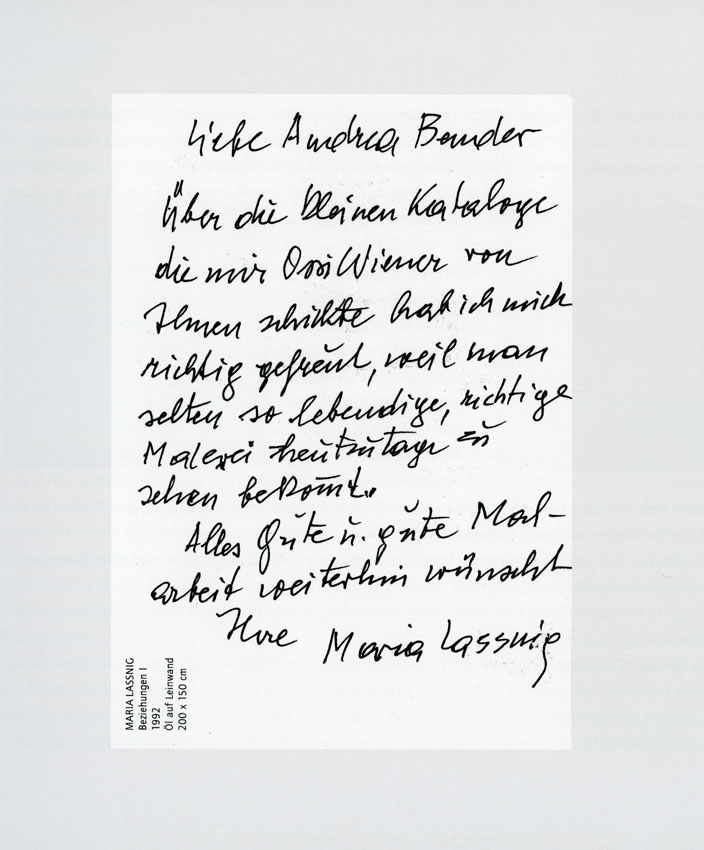 Liebe Andrea Bender
Über die kleinen Kataloge
die mir Ossi Wiener von
Ihnen schickte hab ich mich
richtig gefreut, weil man
selten so lebendige, richtige
Malerei heutzutage zu
sehen bekomt.
Alles Gute u. gute Mal-
arbeit weiterhin wünscht
Ihre Maria Lassnig
MARIA LASSNIG
Beziehungen I
1992
Öl auf Leinwand
200 x 150 cm